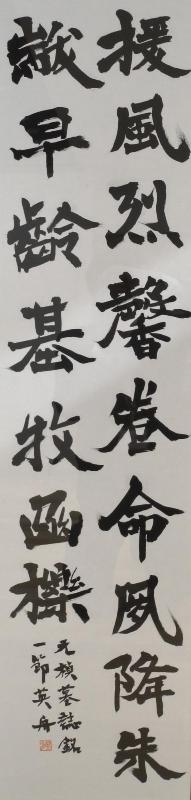 援風烈馨眷命夙降朱
黻早齡基牧幽櫟
元楨墓誌銘
一節英舟